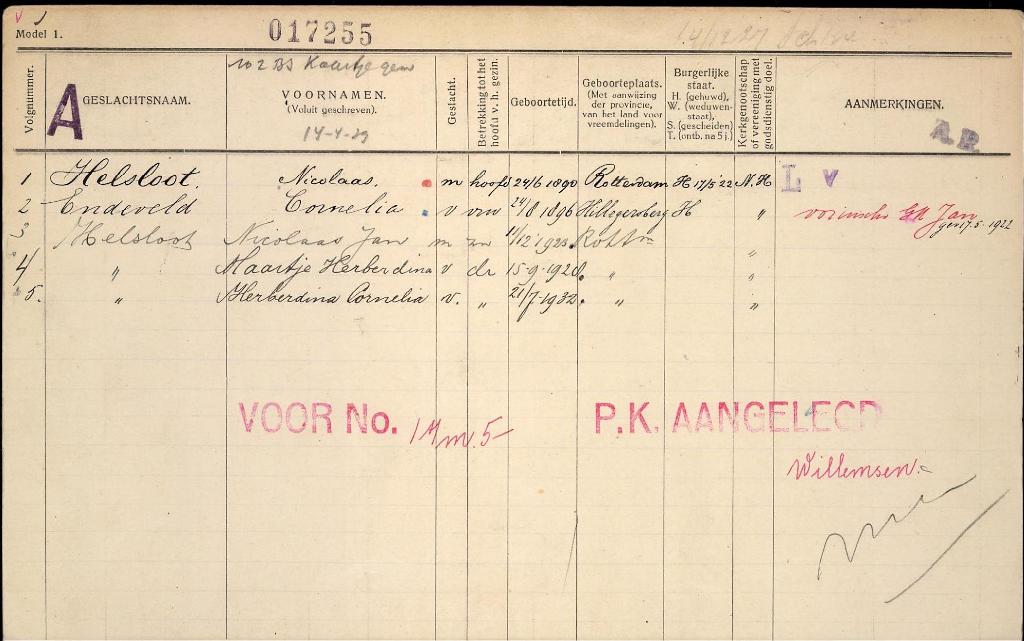 Model 1.
017255
Volgnummer.
A GESLACHTSNAAM.
VOORNAMEN.
(Voluit geschreven).
14-4-29
Geslacht.
Betrekking tot het hoofd v. h. gezin.
Geboortetijd.
Geboorteplaats.
(Met aanwijzing der provincie, van het land voor vreemdelingen).
Burgerlijke staat.
H. (gehuwd),
W. (weduwenstaat),
S. (gescheiden)
T. (ontb. na 5 j.)
Kerkgenootschap of vereeniging met godsdienstig doel.
AANMERKINGEN.
A.R.
1 Helsloot. Nicolaas. m hoofd 24/6 1890 Rotterdam H 17/5 '22 N.H L V
2 Endeveld Cornelia v vrw 24/8 1896 Hillegersberg H " Jan
gen 17-5-1922
3 Helsloot Nicolaas Jan m zn 11/12 1923 Rottm "
4 " Maartje Herberdina v dr 15-9-1928. " "
5. " Herberdina Cornelia v. " 21/7-1932. " "
VOOR No. 1 t/m. 5 P.K. AANGELEGD
Willemsen.